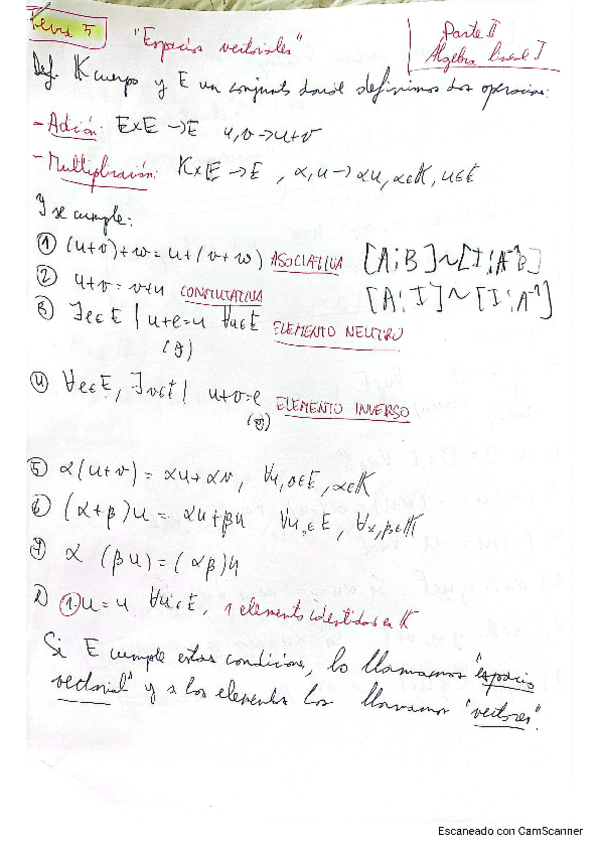 Tema 5
"Espacios vectoriales"
Parte II
Algebra lineal I
Def. K cuerpo y E un conjunto donde definimos dos operaciones:
- Adición: E×E → E u,v → u+v
- Multiplicación: K×E → E , α,u → αu, α∈K, u∈E
Y se cumple:
① (u+v)+w = u+(v+w) ASOCIATIVA [A¦B]~[I¦A⁻¹B]
② u+v = v+u CONMUTATIVA [A¦I]~[I¦A⁻¹]
③ ∃e∈E | u+e=u ∀u∈E ELEMENTO NEUTRO
④ ∀e∈E, ∃v∈E | u+v=e ELEMENTO INVERSO
⑤ α(u+v) = αu+αv, ∀u,v∈E, α∈K
⑥ (α+β)u = αu+βu ∀u,∈E, ∀α,β∈K
⑦ α (βu) = (αβ)u
⑧ 1·u = u ∀u∈E, 1 elemento identidad en K
Si E cumple estas condiciones, lo llamamos "espacio
vectorial" y a los elementos los llamamos "vectores".
Escaneado con CamScanner